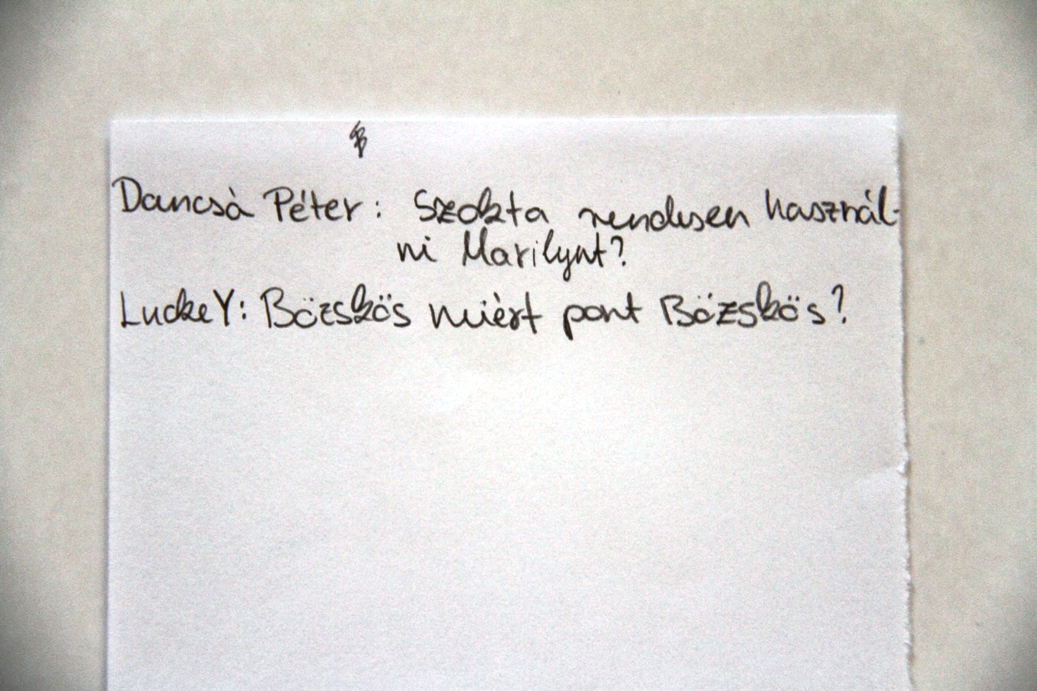 Dancsó Péter: Szokta rendesen használ-
ni Marilynt?
LuckeY: Bözskös miért pont Bözskös?